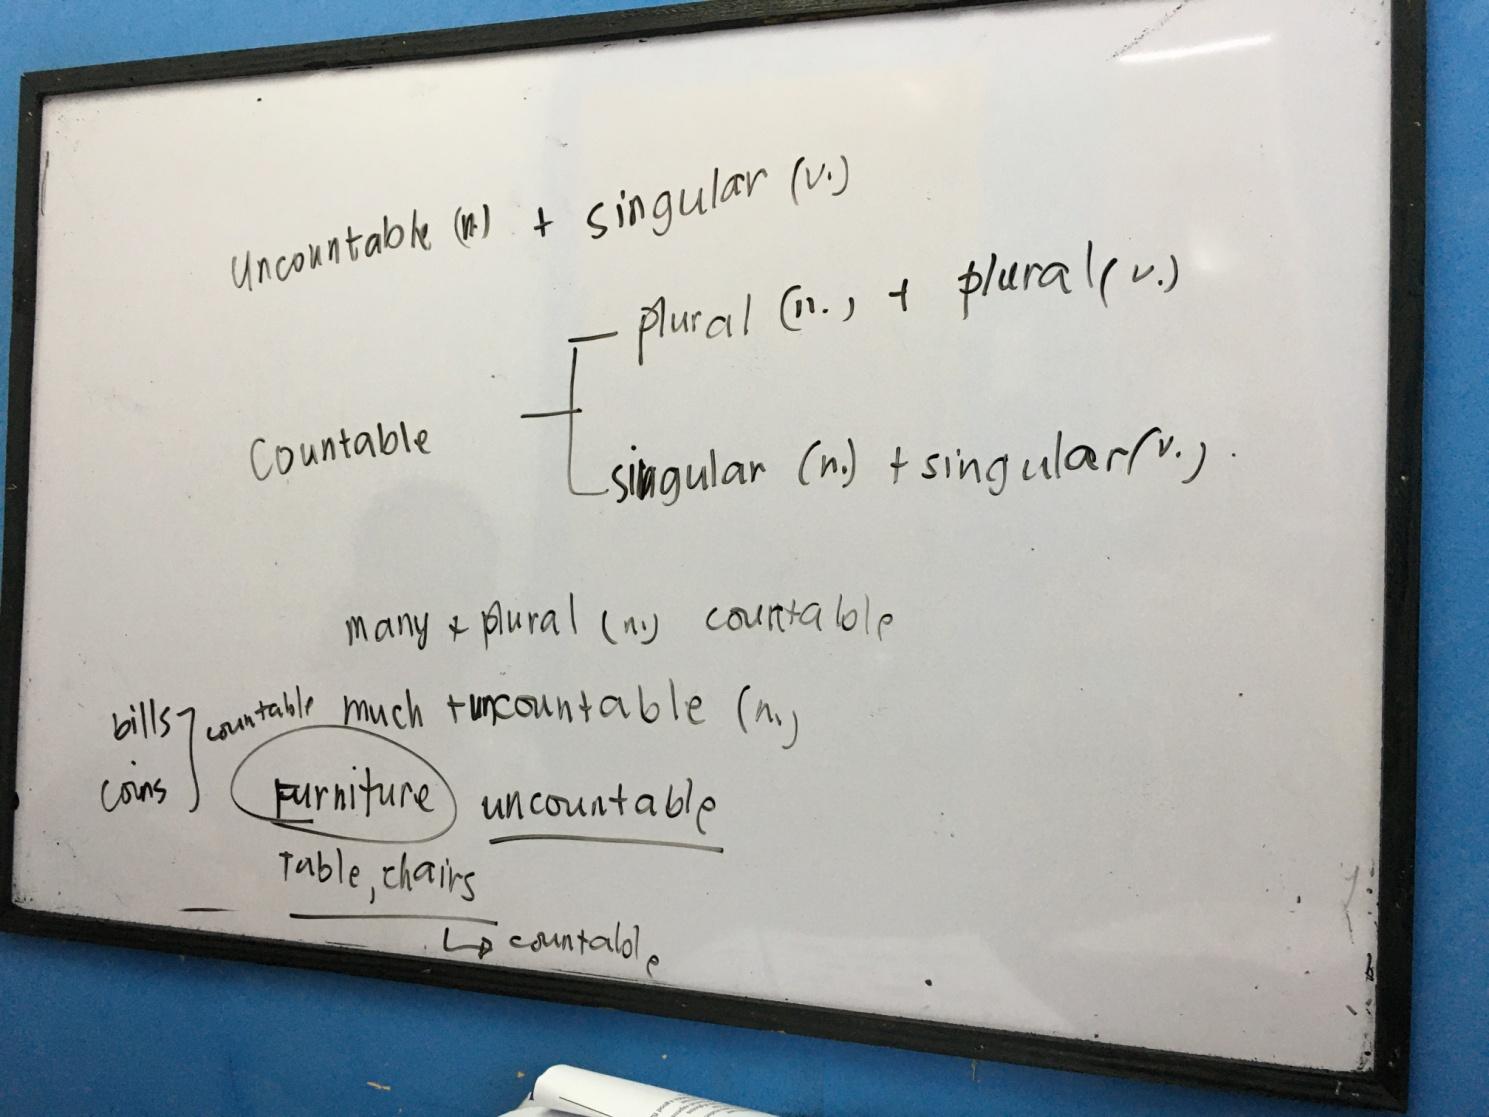 Uncountable (n.) + singular (v.)
plural (n.) + plural (v.)
Countable
singular (n.) + singular (v.).
many + plural (n.) countable
bills countable much + uncountable (n.)
coins Furniture uncountable
Table, chairs
↳ countable